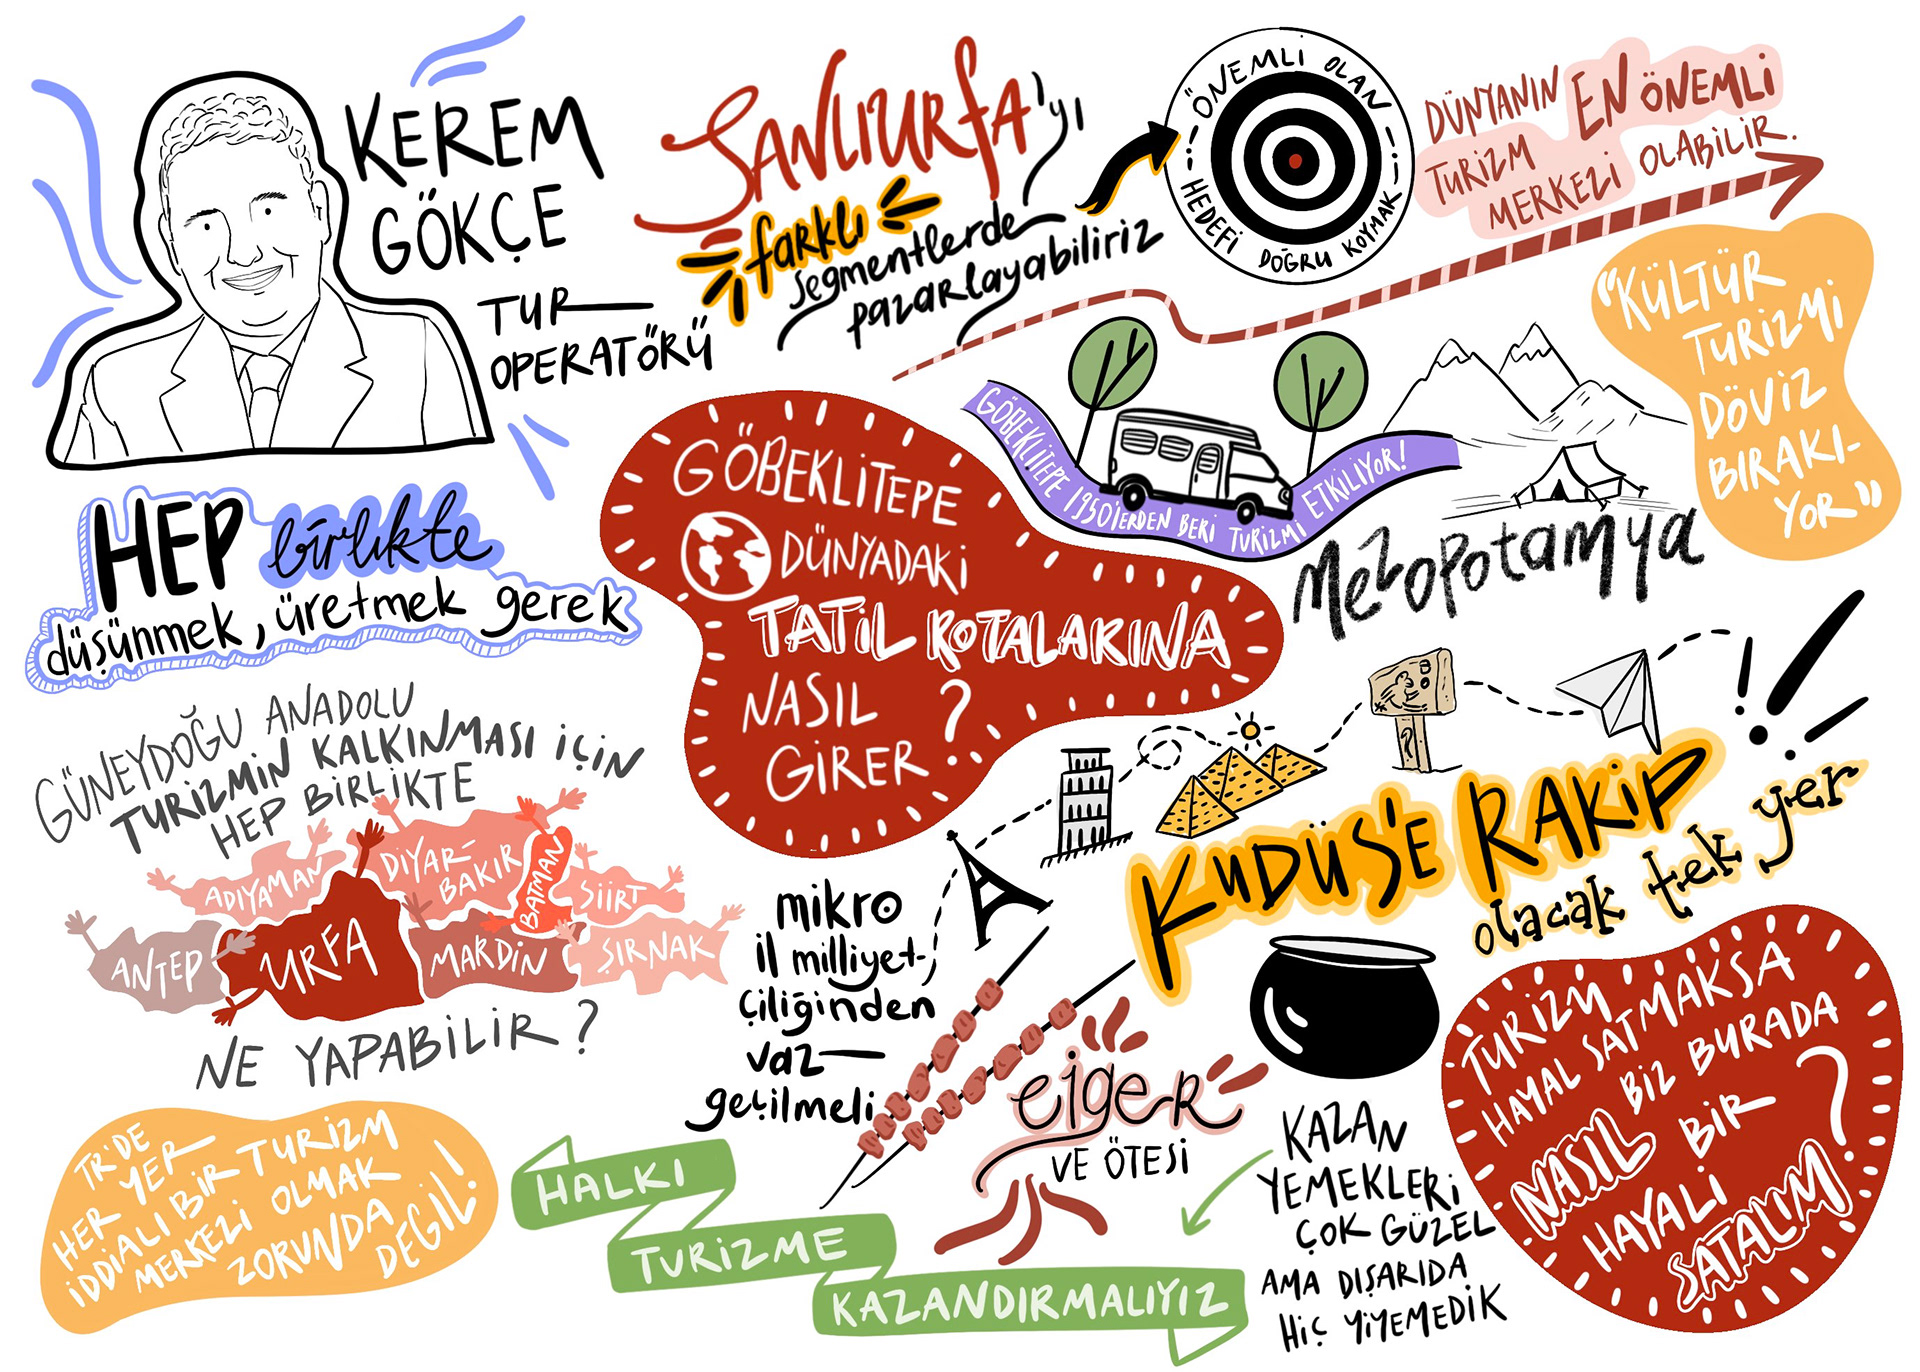 KEREM
GÖKÇE
TUR
OPERATÖRÜ
ŞANLIURFA'yı
farklı
segmentlerde
pazarlayabiliriz
"ÖNEMLİ OLAN
HEDEFİ DOĞRU KOYMAK
DÜNYANIN EN ÖNEMLİ
TURİZM
MERKEZİ OLABİLİR.
"KÜLTÜR
TURİZMİ
DÖVİZ
BIRAKI-
YOR"
GÖBEKLİTEPE 1950'lERDEN BERİ TURİZMİ ETKİLİYOR!
MEZOPOTAMYA
GÖBEKLİTEPE
DÜNYADAKİ
TATİL ROTALARINA
NASIL
GİRER?
HEP birlikte
düşünmek, üretmek gerek
GÜNEYDOĞU ANADOLU
TURİZMİN KALKINMASI İÇİN
HEP BİRLİKTE
ADIYAMAN
DİYAR-
BAKIR
BATMAN
SİİRT
ANTEP
URFA
MARDİN
ŞIRNAK
NE YAPABİLİR?
KUDÜS'E RAKİP
olacak tek yer
mikro
il milliyet-
çiliğinden
vaz
geçilmeli
ciğer
VE ÖTESİ
KAZAN
YEMEKLERİ
ÇOK GÜZEL
AMA DIŞARIDA
HİÇ YİYEMEDİK
TURİZM
HAYAL SATMAKSA
BİZ BURADA
NASIL BİR
HAYALİ
SATALIM?
TR'DE
HER YER
İDDİALI BİR TURİZM
MERKEZİ OLMAK
ZORUNDA
DEĞİL!
HALKI
TURİZME
KAZANDIRMALIYIZ